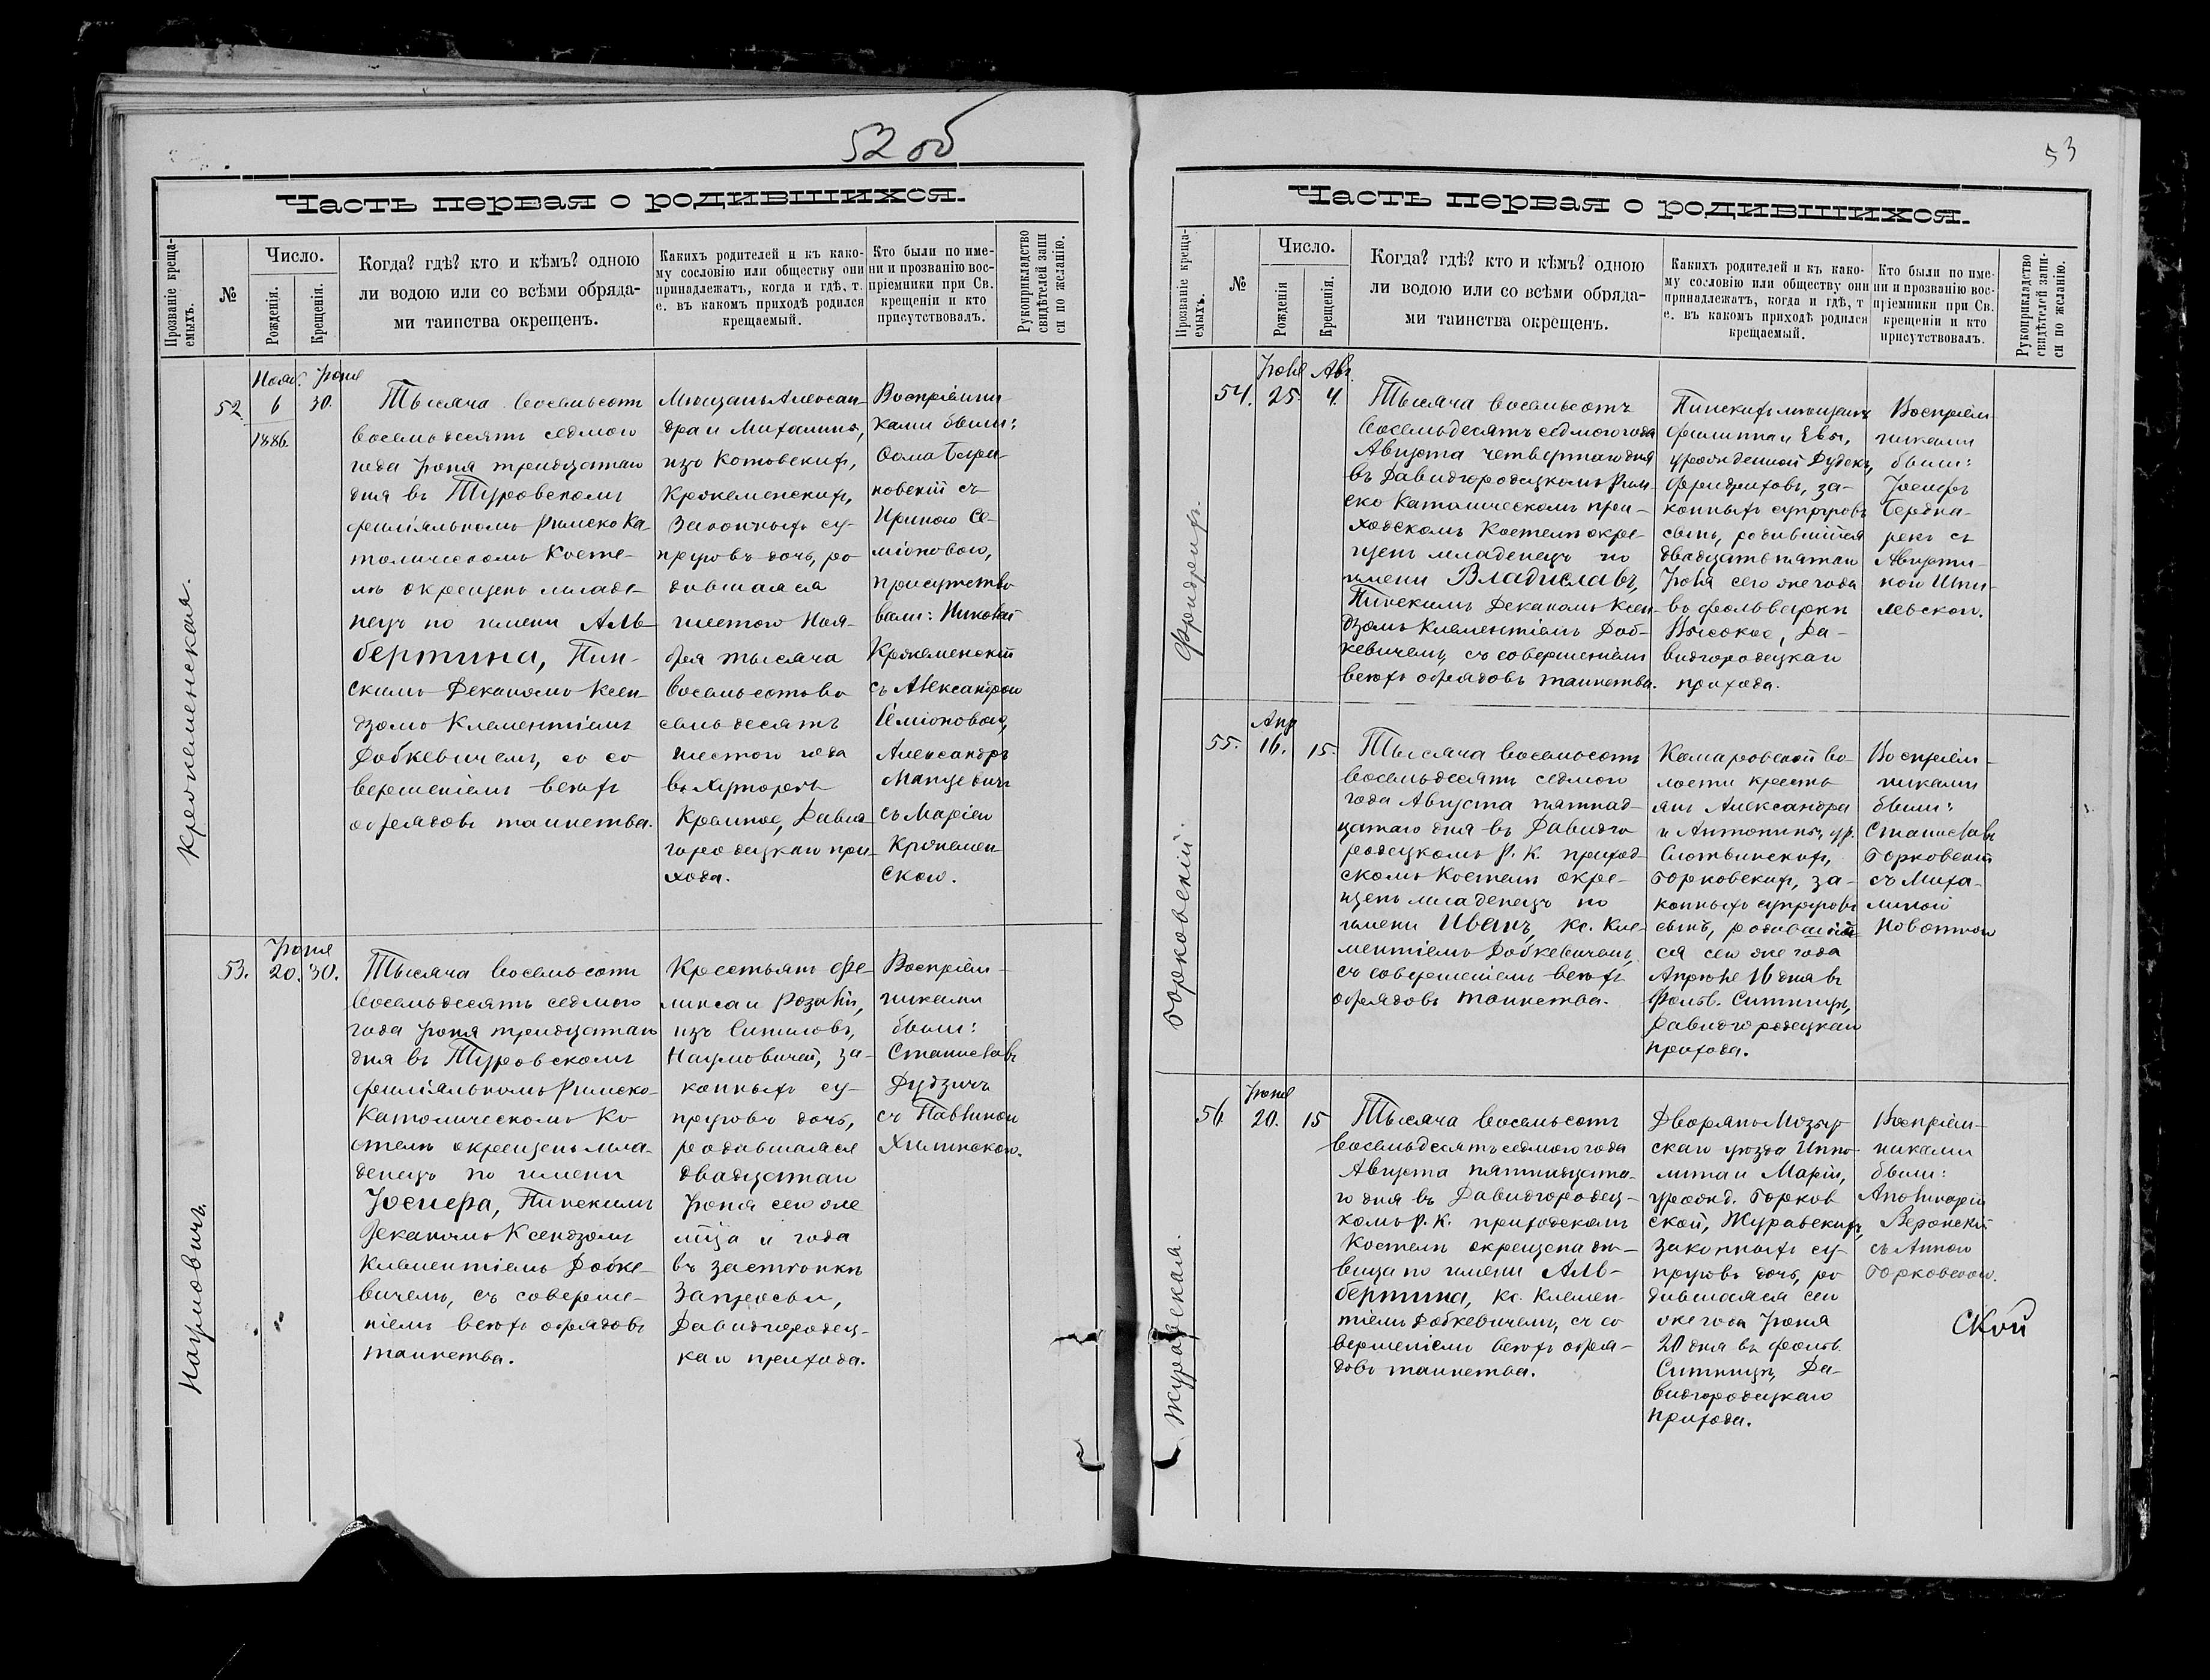 52 об
Часть первая о родившихся.
Прозваніе креща-
емыхъ.
№
Число.
Рожденія.
Крещенія.
Когда? гдѣ? кто и кѣмъ? одною
ли водою или со всѣми обряда-
ми таинства окрещенъ.
Какихъ родителей и къ како-
му сословію или обществу они
принадлежатъ, когда и гдѣ, т.
е. въ какомъ приходѣ родился
крещаемый.
Кто были по име-
ни и прозванію вос-
пріемники при Св.
крещеніи и кто
присутствовалъ.
Рукоприкладство
свидѣтелей запи
си по желанію.
Кржеменская.
52.
Нояб.
6
1886
Іюня
30.
Тысяча восемьсотъ
восемьдесятъ седмого
года Іюня тридцатаго
дня въ Туровскомъ
филіяльномъ Римско Ка
толическомъ Косте-
лѣ окрещенъ младе-
нецъ по имени Аль-
бертина, Пин-
скимъ Деканомъ Ксен-
дзомъ Клементіемъ
Добкевичемъ, со со
вершеніемъ всѣхъ
обрядовъ таинства.
Мѣщанъ Алексан-
дра и Михалины,
изъ Котовскихъ,
Кржеменскихъ,
Законныхъ су-
пруговъ дочь, ро
дившаяся
шестого Ноя-
бря тысяча
восемьсотъ во
семьдесятъ
шестого года
въ хуторѣ
Крамное, Давид
городецкаго при-
хода.
Воспріемни-
ками были:
Ѳома Бара-
новскій съ
Ириною Се-
міоновою,
присутство
вали: Николай
Кржеменскій
съ Александрою
Семіоновою,
Александръ
Манцевичъ
съ Маріею
Кржемен-
скою.
Наумовичъ.
53.
Іюня
20.
30.
Тысяча восемьсотъ
восемьдесятъ седмого
года Іюня тридцатаго
дня въ Туровскомъ
филіяльномъ Римско-
Католическомъ Ко
стелѣ окрещенъ мла-
денецъ по имени
Юзефа, Пинскимъ
Деканомъ Ксендзомъ
Клементіемъ Добке-
вичемъ, съ соверше-
ніемъ всѣхъ обрядовъ
таинства.
Крестьянъ Фе-
ликса и Розаліи,
изъ Ситиловъ,
Наумовичей, за-
конныхъ су-
пруговъ дочь,
родившаяся
двадцатаго
Іюня сего же
мѣца и года
въ застѣнкѣ
Запросьи,
Давидгородец-
каго прихода.
Воспріем-
никами
были:
Станиславъ
Дудзичъ
съ Павлиною
Хилинскою.
53
Часть первая о родившихся.
Прозваніе креща-
емыхъ.
№
Число.
Рожденія
Крещенія.
Когда? гдѣ? кто и кѣмъ? одною
ли водою или со всѣми обряда-
ми таинства окрещенъ.
Какихъ родителей и къ како-
му сословію или обществу они
принадлежатъ, когда и гдѣ, т
е. въ какомъ приходѣ родился
крещаемый.
Кто были по име-
ни и прозванію вос-
пріемники при Св.
крещеніи и кто
присутствовалъ.
Рукоприкладство
свидѣтелей запи-
си по желанію.
Фридрихъ.
54.
Іюля
25
Авг.
4.
Тысяча восемьсотъ
восемьдесятъ седмого года
Августа четвертаго дня
въ Давидгородецкомъ Рим-
ско Католическомъ при-
ходскомъ Костелѣ окре-
щенъ младенецъ по
имени Владиславъ,
Пинскимъ Деканомъ Ксен-
дзомъ Клементіемъ Доб-
кевичемъ, съ совершеніемъ
всѣхъ обрядовъ таинства.
Пинскихъ мѣщанъ
Филиппа и Евы,
урожденной Дудекъ,
Фридриховъ, за-
конныхъ супруговъ
сынъ, родившійся
двадцать пятаго
Іюля сего же года
въ фольваркѣ
Высокое, Да-
видгородецкаго
прихода.
Воспріем-
никами
были:
Іосифъ
Бедна-
рекъ съ
Августи-
ною Шпи-
левскою.
Борковскій.
55.
Апр
16.
15.
Тысяча восемьсотъ
восемьдесятъ седмого
года Августа пятнад-
цатаго дня въ Давидго
родецкомъ Р. К. приход-
скомъ Костелѣ окре-
щенъ младенецъ по
имени Иванъ, Кс. Кле-
ментіемъ Добкевичемъ,
съ совершеніемъ всѣхъ
обрядовъ таинства.
Комаровской во-
лости кресть-
янъ Александра
и Антонины, ур.
Слотвинскихъ,
Борковскихъ, за-
конныхъ супруговъ
сынъ, родившій-
ся сего же года
Апрѣля 16 дня въ
фольв. Ситницѣ,
Давидгородецкаго
прихода.
Воспріем-
никами
были:
Станиславъ
Борковскій
съ Миха-
линой
Новотною
Журавская.
56
Іюня
20.
15
Тысяча восемьсотъ
восемьдесятъ седмого года
Августа пятнадцата-
го дня въ Давидгородец-
комъ Р. К. приходскомъ
Костелѣ окрещена дѣ-
вица по имени Аль-
бертина, Кс. Клемен-
тіемъ Добкевичемъ, съ со
вершеніемъ всѣхъ обря-
довъ таинства.
Дворянъ Мозыр
скаго уѣзда Иппо-
лита и Маріи,
урожд. Борков
ской, Журавскихъ,
законныхъ су-
пруговъ дочь, ро
дившаяся сего
же года Іюня
20 дня въ фольв.
Ситницѣ, Да-
видгородецкаго
прихода.
Воспріем-
никами
были:
Аполинарій
Веронскій
съ Анною
Борковскою.
ской